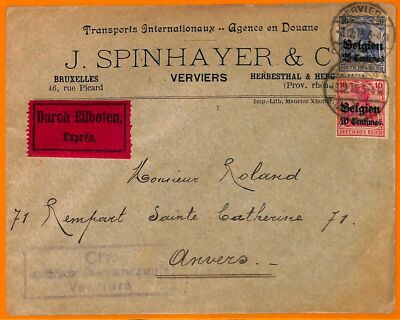 Transports Internationaux -- Agence en Douane
J. SPINHAYER & C
BRUXELLES
46, rue Picard
VERVIERS
HERBESTHAL & HERG
(Prov. rhen
Imp.-Lith. Maurice Xhoffer
VERVIERS
20 20
Belgien
25 Centimes
DEUTSCHES REICH
10 10
Belgien
10 Centimes
DEUTSCHES REICH
Durch Eilboten.
Exprès.
Monsieur Roland
71 Rempart Sainte Catherine 71.
Anvers.
Verviers